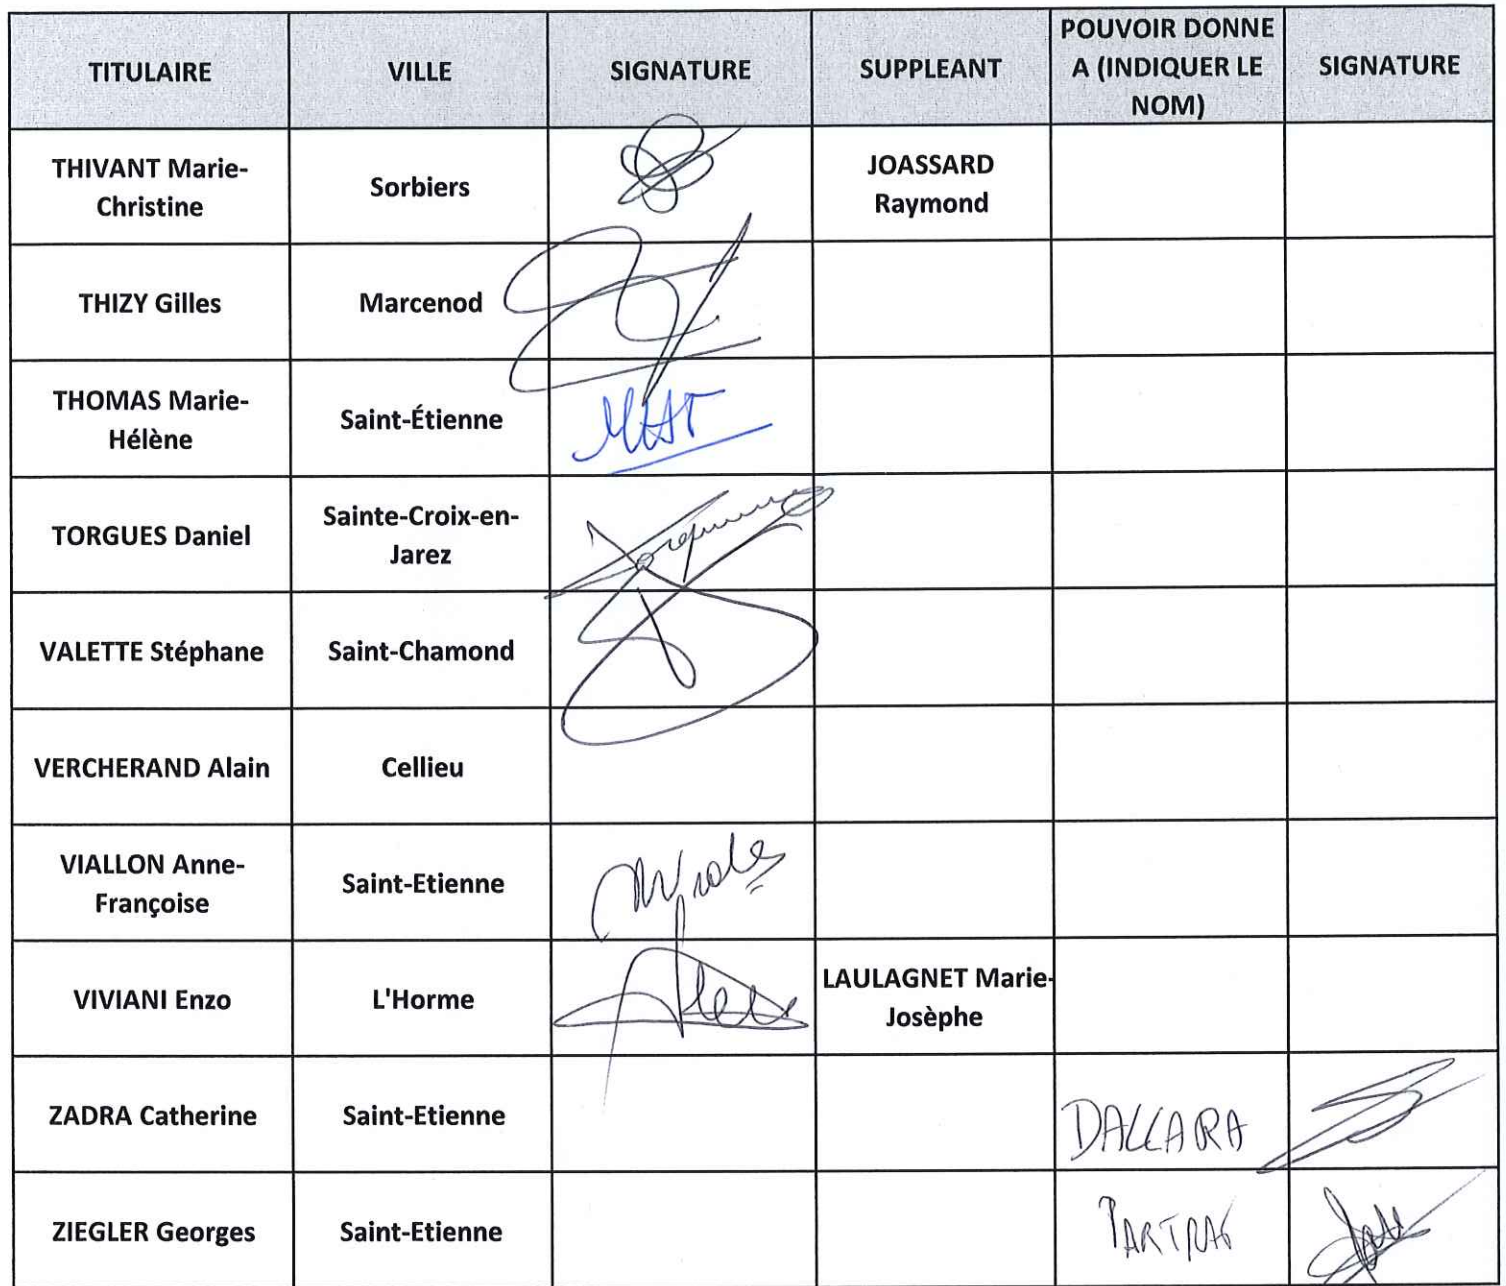 TITULAIRE VILLE SIGNATURE SUPPLEANT POUVOIR DONNE A (INDIQUER LE NOM) SIGNATURE
THIVANT Marie-
Christine
Sorbiers
JOASSARD
Raymond
THIZY Gilles
Marcenod
THOMAS Marie-
Hélène
Saint-Étienne
TORGUES Daniel
Sainte-Croix-en-
Jarez
VALETTE Stéphane
Saint-Chamond
VERCHERAND Alain
Cellieu
VIALLON Anne-
Françoise
Saint-Etienne
VIVIANI Enzo
L'Horme
LAULAGNET Marie-
Josèphe
ZADRA Catherine
Saint-Etienne
DALLARA
ZIEGLER Georges
Saint-Etienne